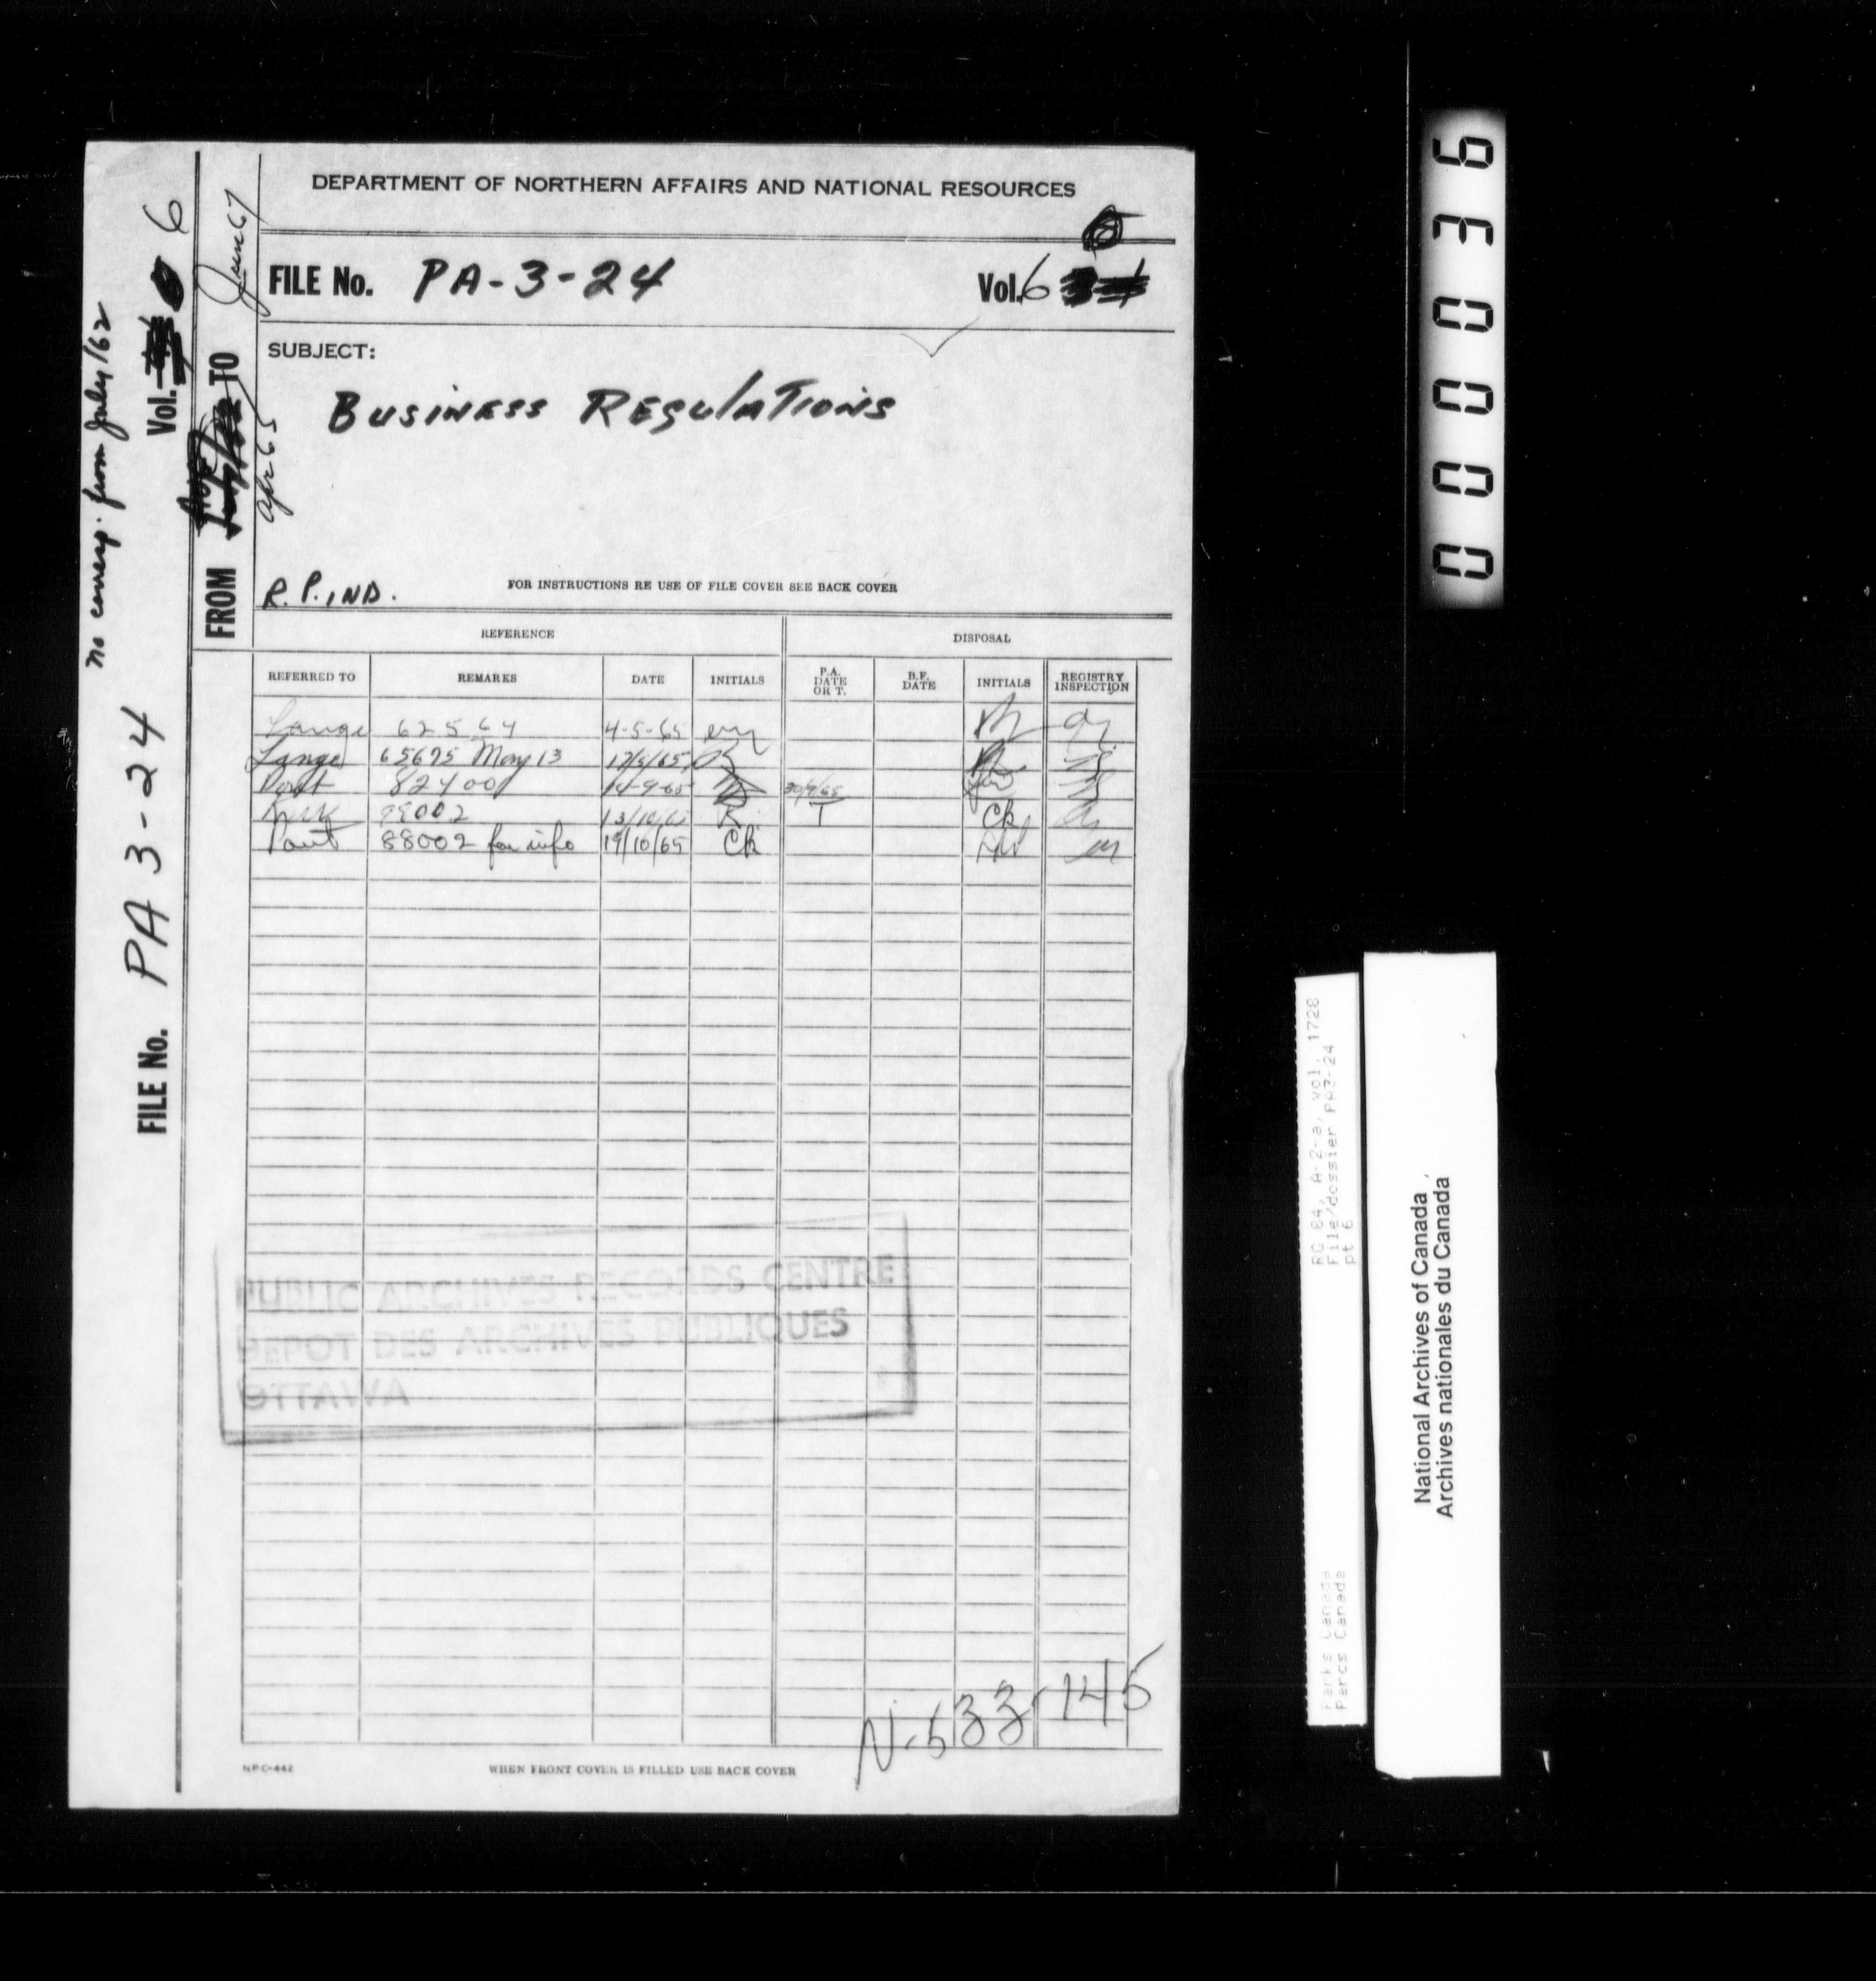 DEPARTMENT OF NORTHERN AFFAIRS AND NATIONAL RESOURCES
FILE No. PA-3-24 Vol. 6
SUBJECT:
BUSINESS REGULATIONS
R.P. IND.
FOR INSTRUCTIONS RE USE OF FILE COVER SEE BACK COVER
REFERENCE DISPOSAL
REFERRED TO REMARKS DATE INITIALS P.A. DATE OR T. B.F. DATE INITIALS REGISTRY INSPECTION
Lange 62564 4-5-65
Lange 65675 May 13 17/5/65
82400 14-9-65 30/9/65
88002 13/10/65 R T Ck
88002 for info 19/10/65 Ck
PUBLIC ARCHIVES RECORDS CENTRE
DEPOT DES ARCHIVES PUBLIQUES
OTTAWA
N-633-145
NPC-442 WHEN FRONT COVER IS FILLED USE BACK COVER
no corresp. from July/62
FILE No. PA 3-24 Vol. 6
FROM TO June 67
Apr 65
000036
RG 84, A-2-a, vol. 1728
File/dossier PA3-24
pt 6
Parks Canada
Parcs Canada
National Archives of Canada
Archives nationales du Canada